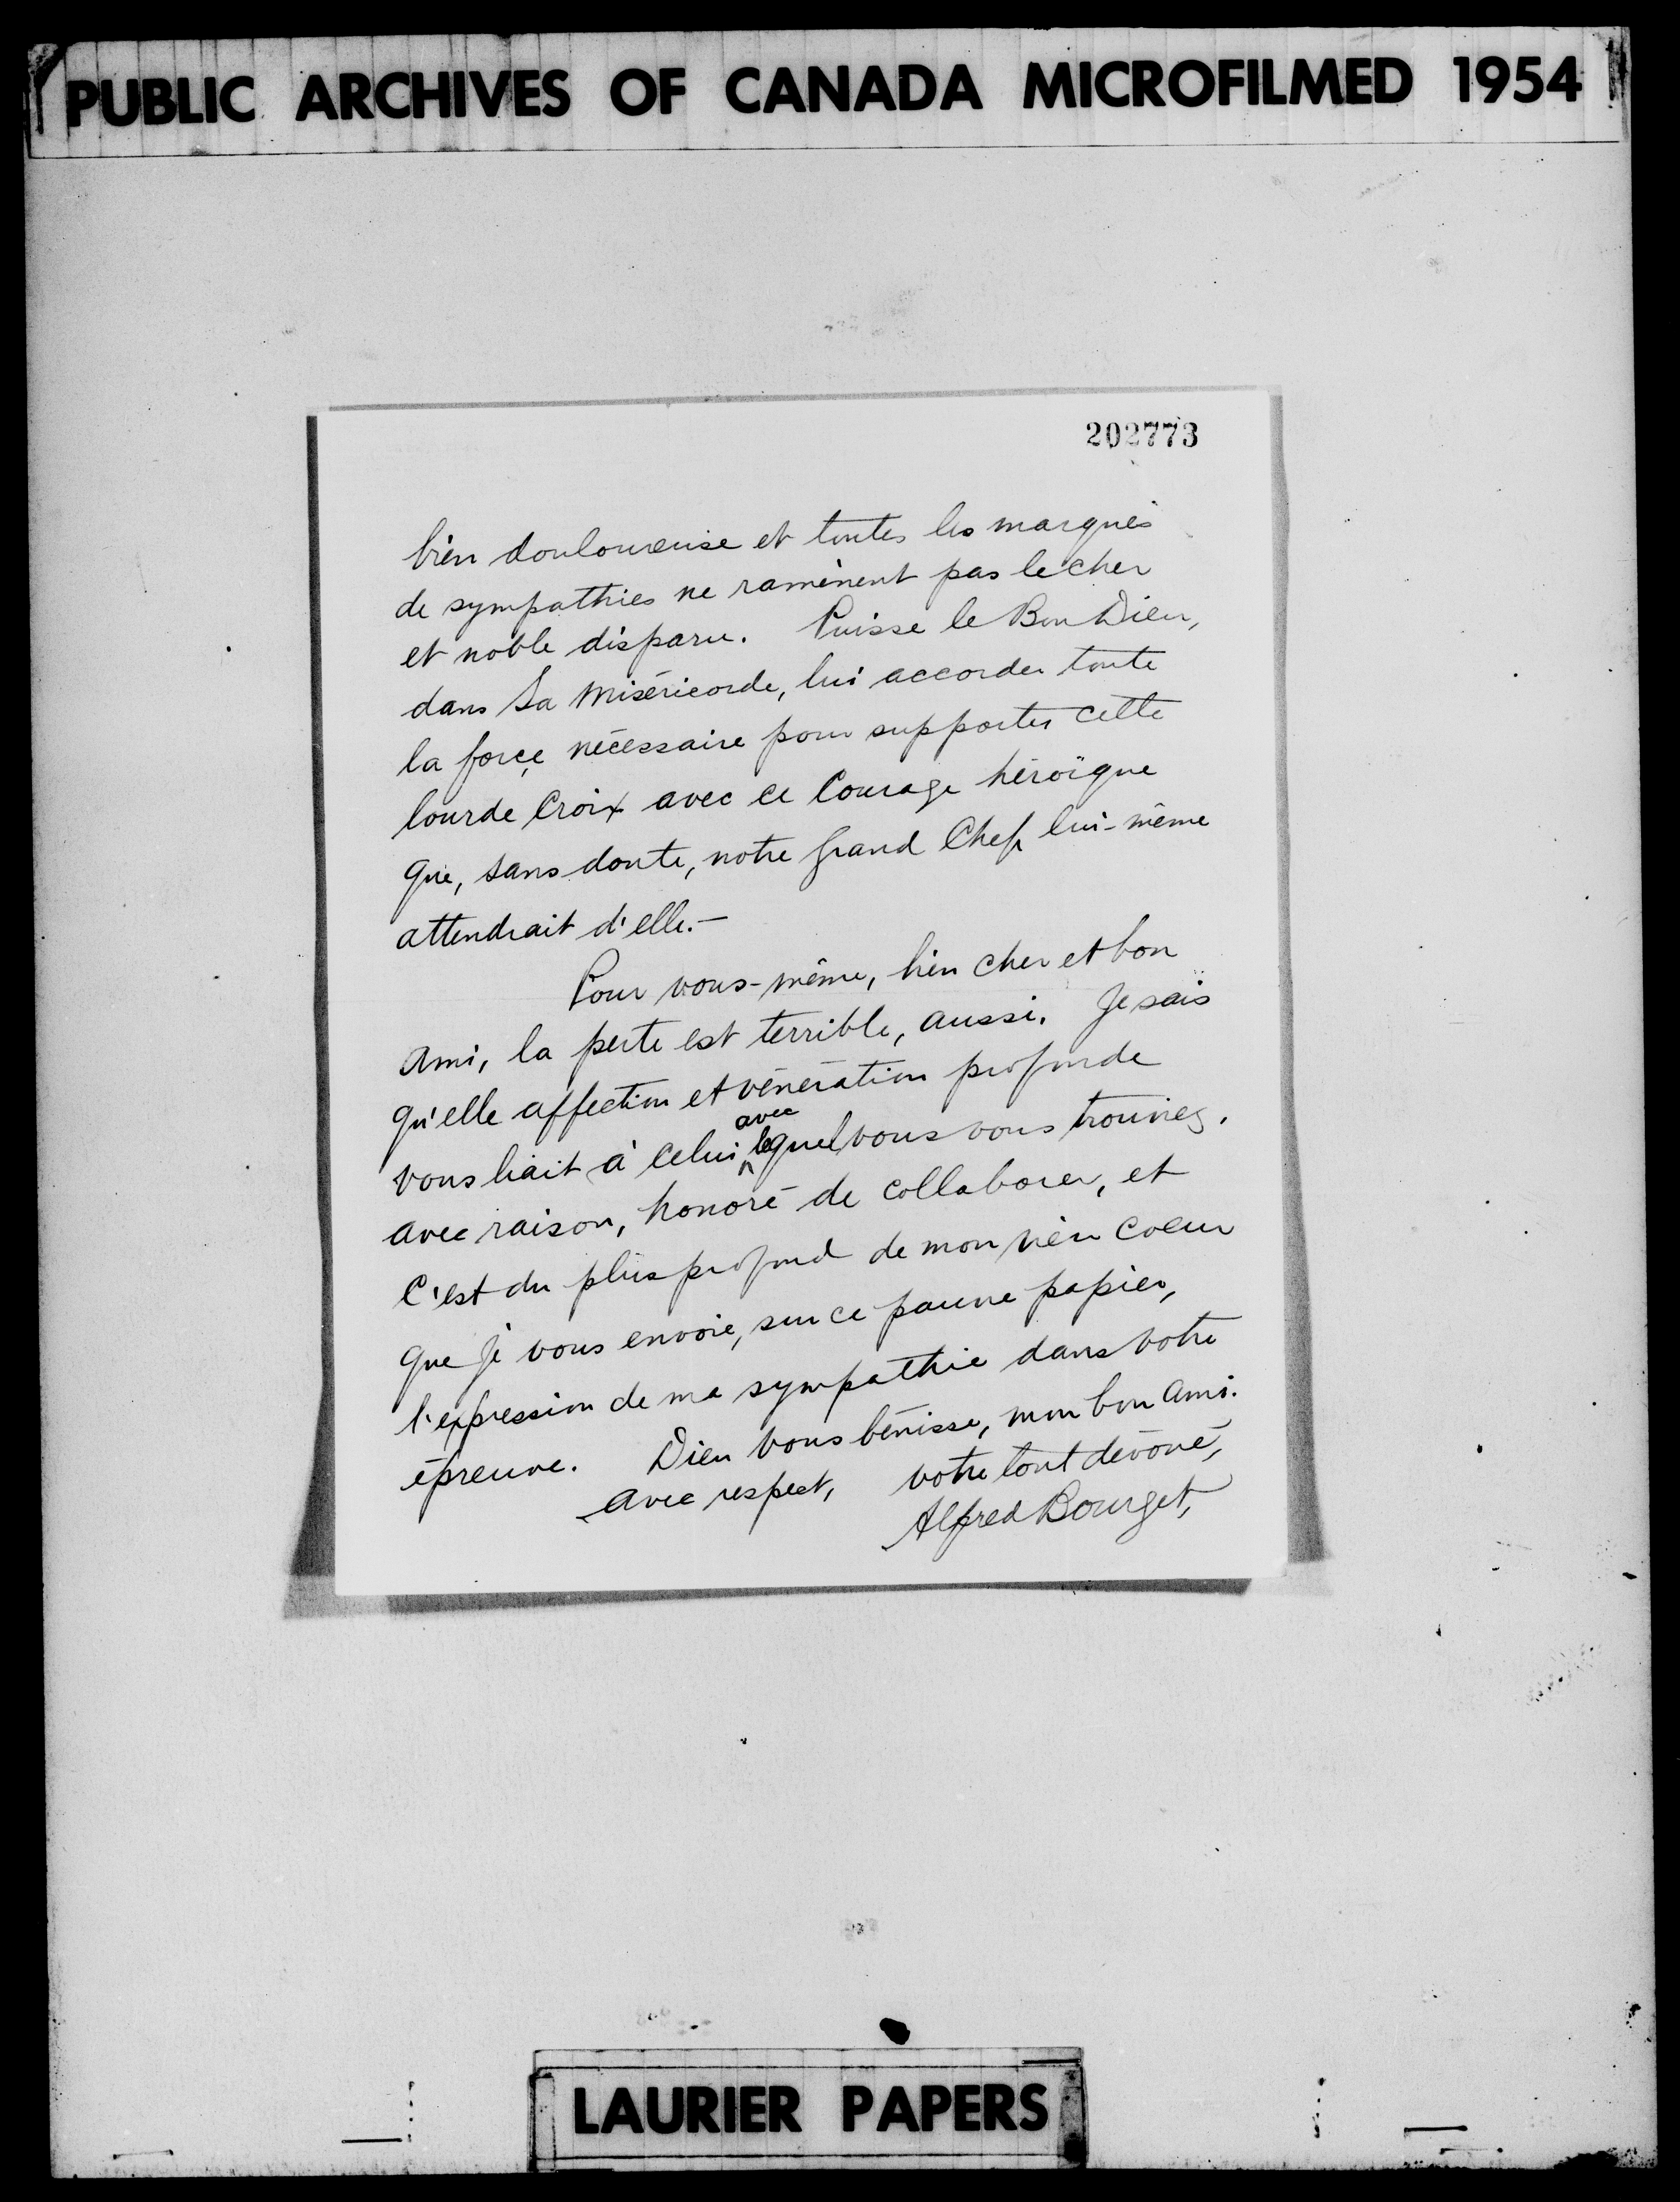 PUBLIC ARCHIVES OF CANADA MICROFILMED 1954
202773
bien douloureuse et toutes les marques
de sympathies ne ramènent pas le cher
et noble disparu. Puisse le Bon Dieu,
dans Sa Miséricorde, lui accorder toute
la force nécessaire pour supporter cette
lourde Croix avec ce Courage héroïque
que, sans doute, notre grand Chef lui-même
attendrait d'elle.—
Pour vous-même, bien cher et bon
Ami, la perte est terrible, aussi. Je sais
qu'elle affection et vénération profonde
avec
vous liait à celui lequel vous vous trouviez,
avec raison, honoré de collaborer, et
C'est du plus profond de mon vieu coeur
que je vous envoie, sur ce pauvre papier,
l'expression de ma sympathie dans votre
épreuve. Dieu vous bénisse, mon bon Ami.
avec respect, votre tout dévoué,
Alfred Bourget,
LAURIER PAPERS